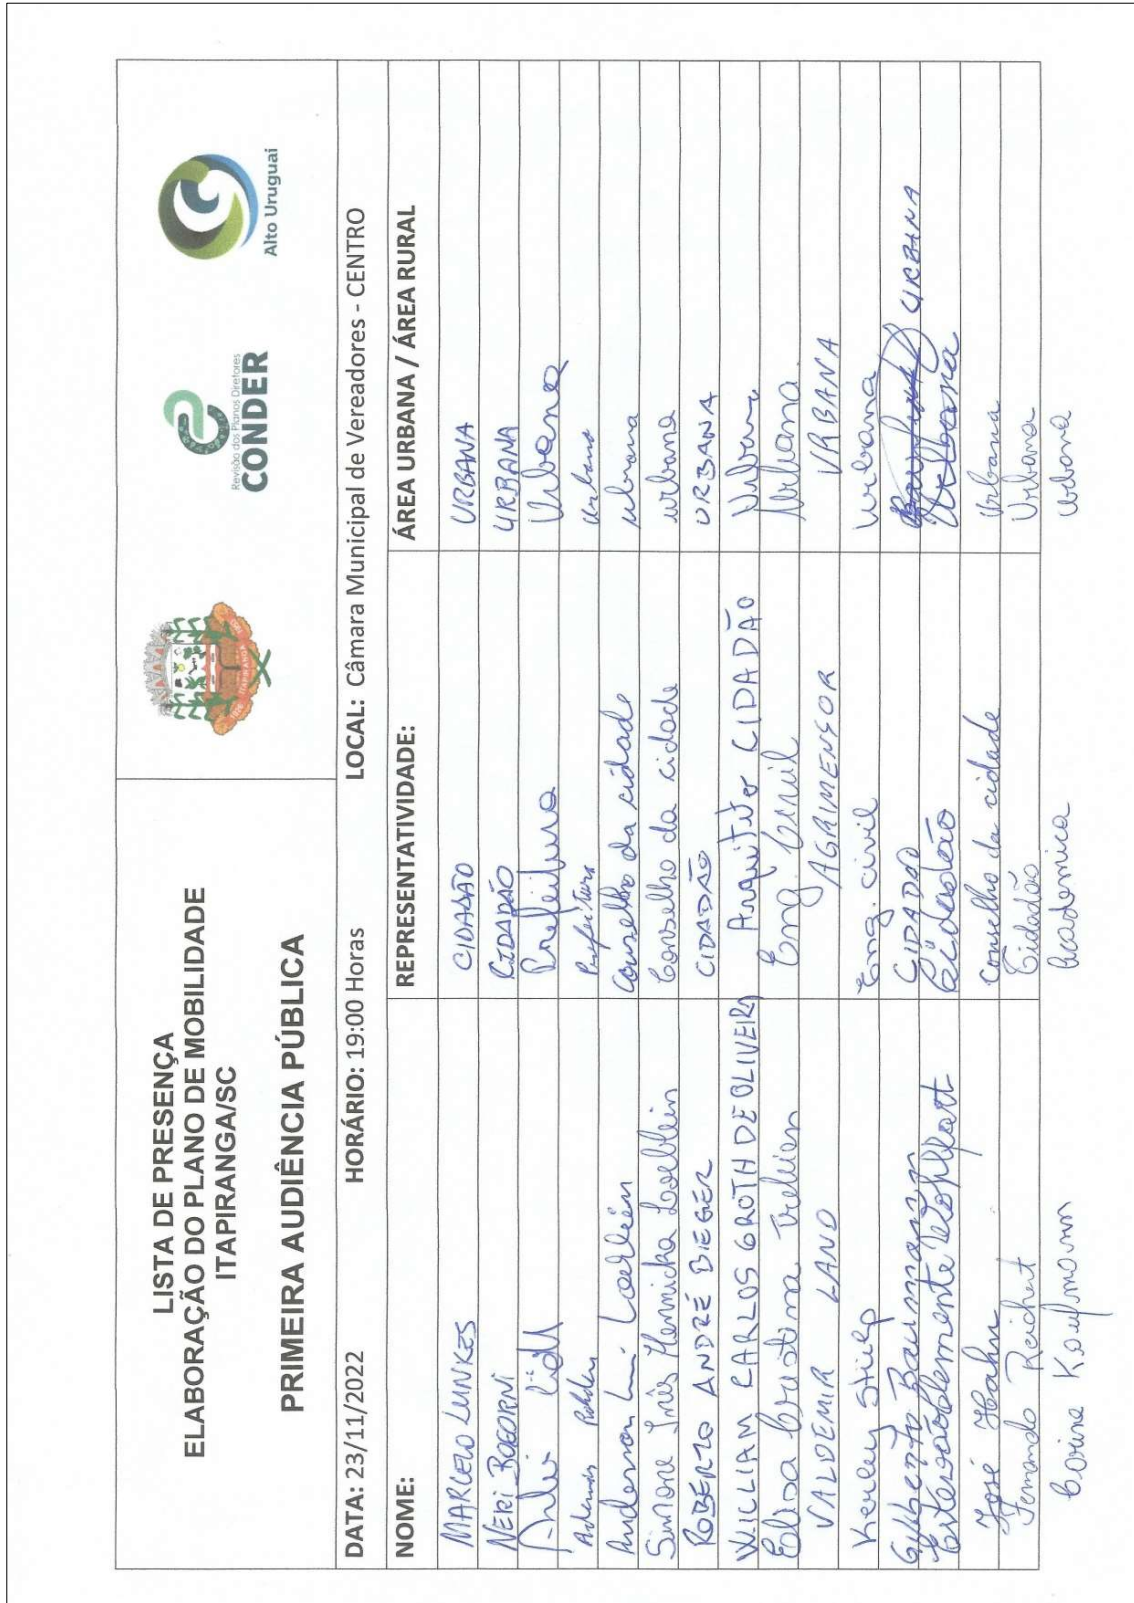 LISTA DE PRESENÇA
ELABORAÇÃO DO PLANO DE MOBILIDADE
ITAPIRANGA/SC
PRIMEIRA AUDIÊNCIA PÚBLICA
Revisão dos Planos Diretores
CONDER
Alto Uruguai
DATA: 23/11/2022 HORÁRIO: 19:00 Horas LOCAL: Câmara Municipal de Vereadores - CENTRO
NOME: REPRESENTATIVIDADE: ÁREA URBANA / ÁREA RURAL
MARCELO LUNKES CIDADÃO URBANA
NERI BOGORNI CIDADÃO URBANA
Prefeitura Urbana
Prefeitura Urbana
Anderson Luí Loeblein Conselho da cidade urbana
Simone Inês Hennicka Loeblein Conselho da cidade urbana
ROBERTO ANDRÉ BIEGER CIDADÃO URBANA
WILLIAM CARLOS GROTH DE OLIVEIRA Arquiteto CIDADÃO Urbana
Elisa Cristina Eng. Civil Urbana
VALDEMIR LAND AGRIMENSOR URBANA
Kerley Stülp Eng. civil urbana
Gilberto Baumann CIDADÃO URBANA
Cidadão Urbana
José Hahn Conselho da cidade Urbana
Fernando Reichert Cidadão Urbana
Corine Kaufmann Academica Urbana